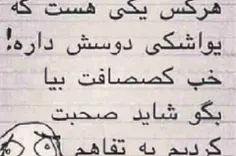 هرکس یکی هست که
یواشکی دوسش داره!
خب کصصافت بیا
بگو شاید صحبت
کردیم به تفاهم